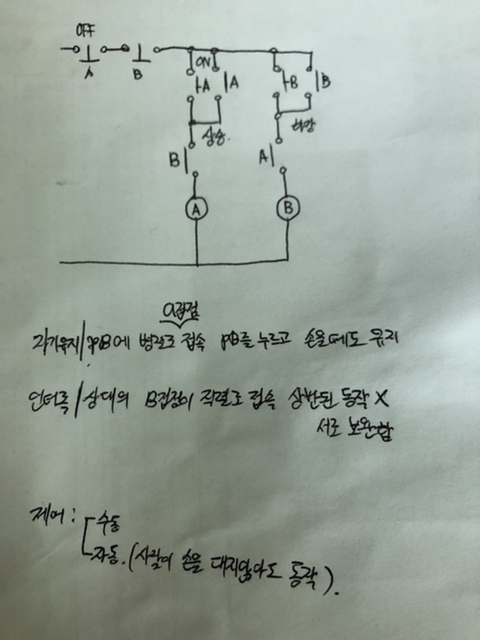 OFF
A B
ON
A A B B
상승 하강
B A
A B
a접점
자기유지/PB에 병렬로 접속 PB를 누르고 손을떼도 유지
인터록/상대의 B접점이 직렬로 접속 상반된 동작 X
서로 보완함
제어: 수동
자동.(사람이 손을 대지않아도 동작).